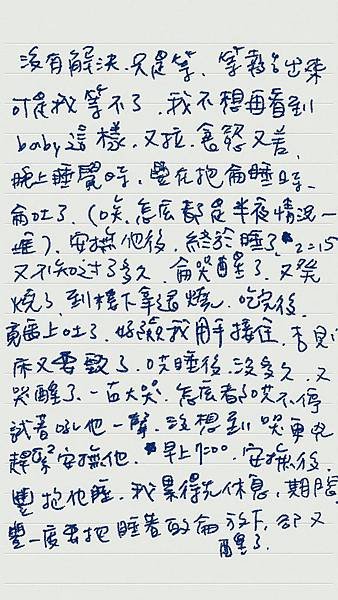 沒有解決、只是等、等報告出來
可是我等不了、我不想再看到
baby這樣、又拉、食慾又差、
晚上睡覺時、豐在抱侖睡時、
侖吐了、(唉、怎麼都是半夜情況一
堆)、安撫他後、終於睡了、2=15
又不知過了多久、侖哭醒了、又發
燒了、到樓下拿退燒、吃完後、
竟馬上吐了、好險我用手接住、否則
床又要毀了、哄睡後、沒多久、又
哭醒了、一直大哭、怎麼都哄不停
試著吼他一聲、沒想到哭更兇
趕緊安撫他、早上7:00、安撫後、
豐抱他睡、我累得先休息、期間
豐一度要把睡著的侖放下、卻又
醒了、